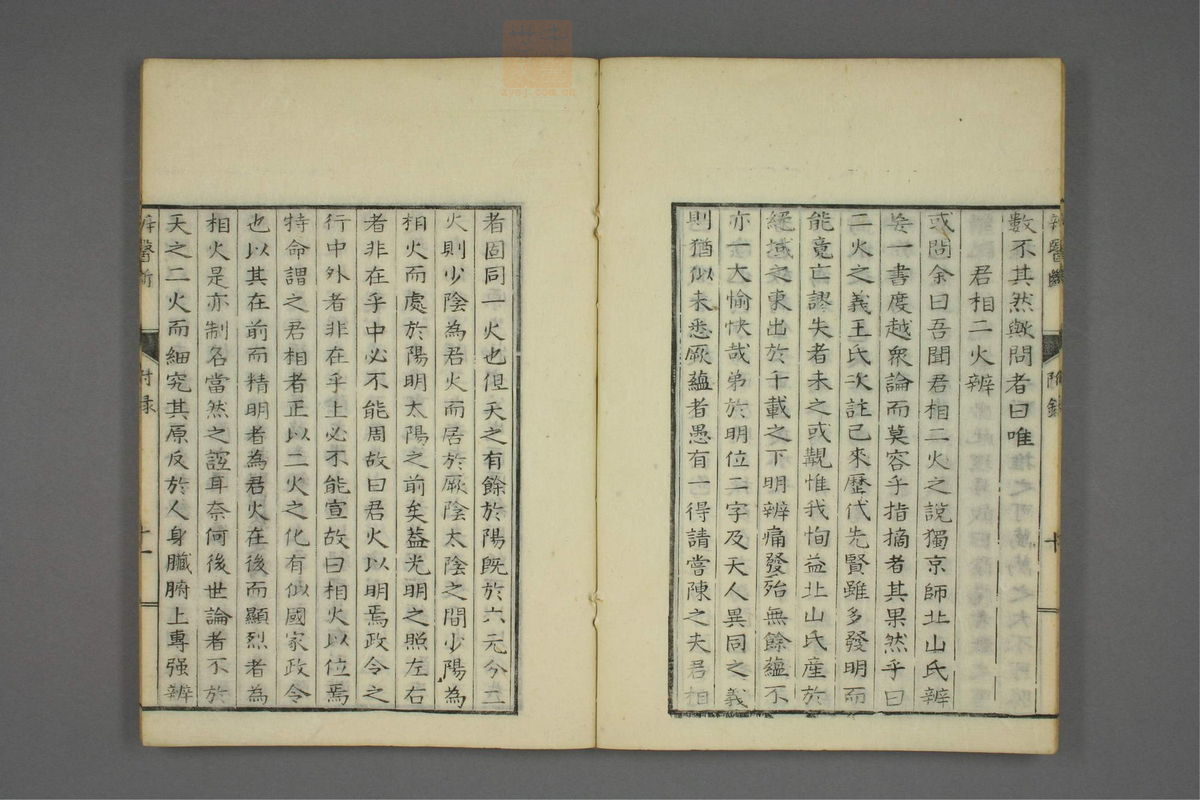 數不其然歟問者曰唯
君相二火辨
或問余曰吾聞君相二火之說獨京師北山氏辨
妄一書度越衆論而莫容乎指摘者其果然乎曰
二火之義王氏次註已來歷代先賢雖多發明而
能竟亡謬失者未之或覯惟我恂益北山氏產於
絕域之東出於千載之下明辨痛發殆無餘蘊不
亦一大愉快哉弟於明位二字及天人異同之義
則猶似未悉厥蘊者愚有一得請嘗陳之夫君相
辨醫斷
附錄
十
者固同一火也但天之有餘於陽旣於六元分二
火則少陰為君火而居於厥陰太陰之間少陽為
相火而處於陽明太陽之前矣葢光明之照左右
者非在乎中必不能周故曰君火以明焉政令之
行中外者非在乎上必不能宣故曰相火以位焉
特命謂之君相者正以二火之化有似國家政令
也以其在前而精明者為君火在後而顯烈者為
相火是亦制名當然之誼耳奈何後世論者不於
天之二火而細究其原反於人身臟腑上專强辨
辨醫斷
附錄
十一